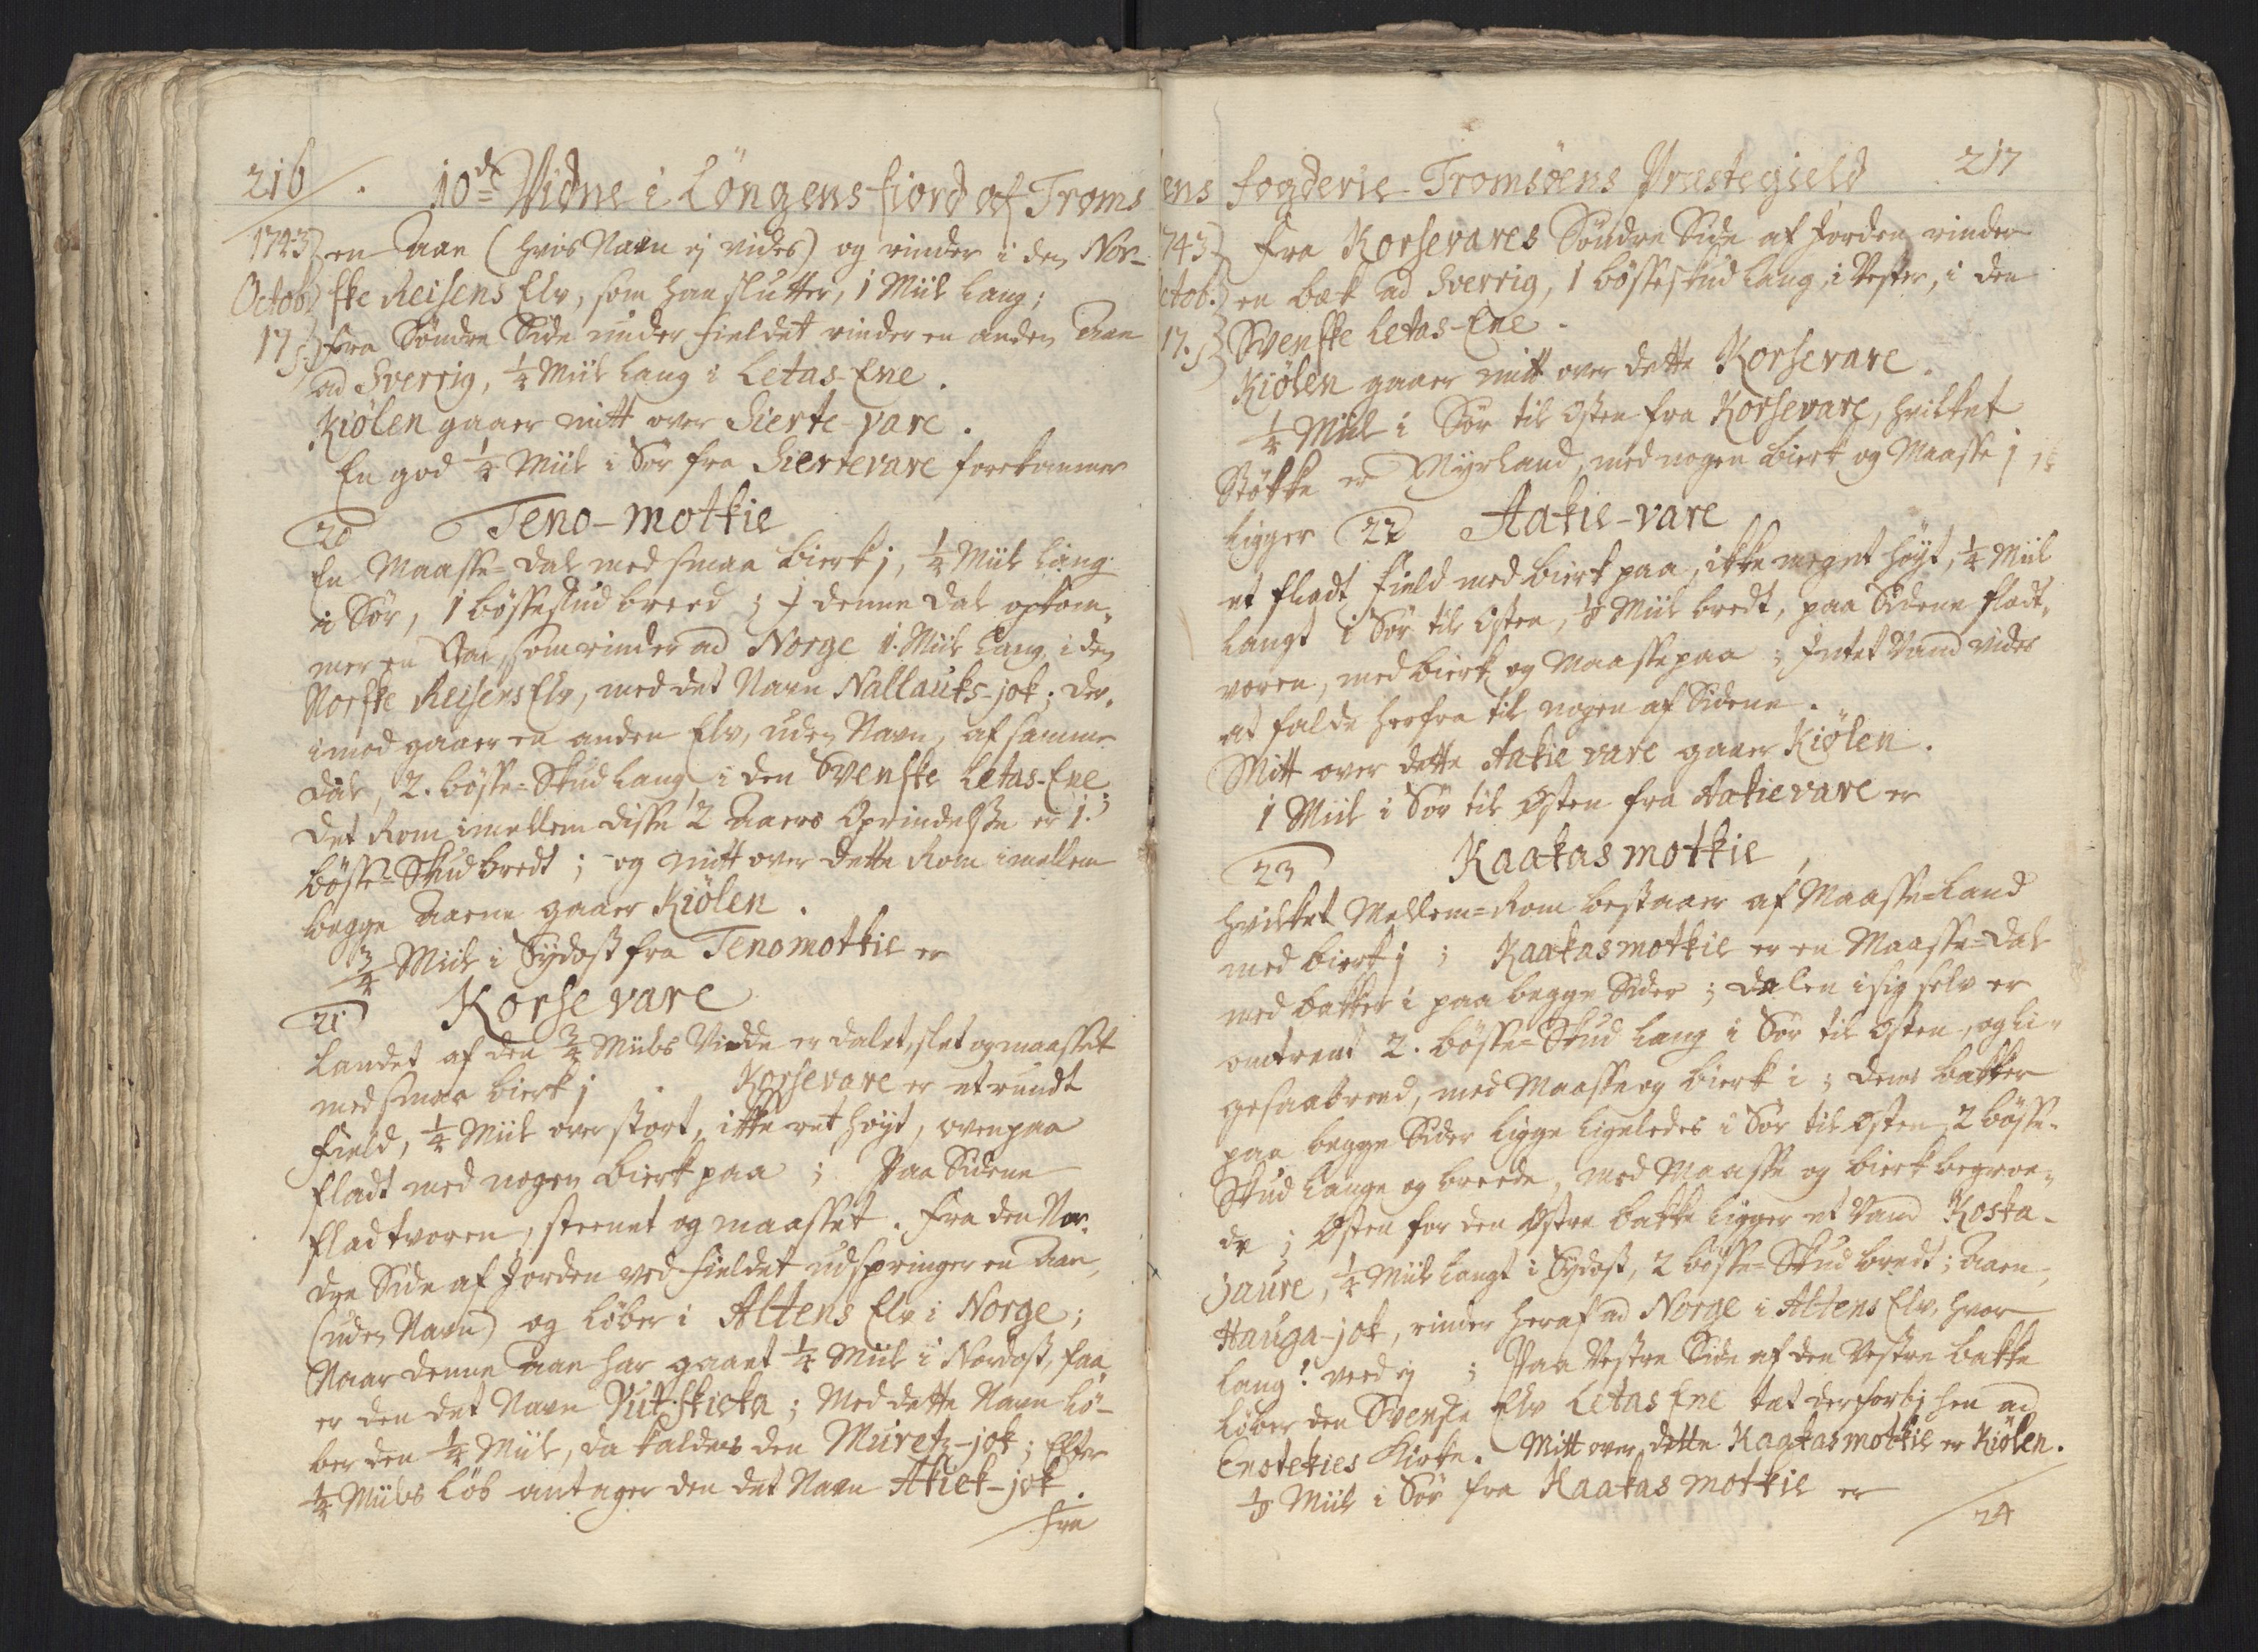 216 10de Vidne i Löngens fiord af Troms
1743 en Aae (hvis Navn ej vides) og rinder i den Nor-
Octob. ske Reisens Elv, som han slutter, 1 Miil lang;
17 fra Söndre Side under fieldet rinder en anden Aae
ad Sverrig, 1/4 Miil lang i Letas-Ene.
Kiölen gaaer mitt over Sierte-vare.
En god 1/4 Miil i Sör fra Siertevare forekommer
20 Teno-motkie
En Maasse-dal med smaa bierk j, 1/4 Miil lang
i Sör, 1 bösseskud breed; I denne dal opkom-
mer en Aae, som rinder ad Norge 1. Miil lang, i den
Norske Reisens Elv, med det Navn Nallauks-jok; der-
imod gaaer en anden Elv, uden Navn, af samme
dal, 2. bösse-Skud lang, i den Svenske Letas-Ene;
det Rom imellem disse 2 Aaers Oprindelse er 1.
bösse-Skud bredt; og mitt over dette Rom imellem
begge Aaerne gaaer Kiölen.
3/4 Miil i Sydost fra Tenomotkie er
21 Korsevare
Landet af den 3/4 Miils Vidde er dalet, slet og maasset
med smaa bierk j. Korsevare er et rundt
field, 1/4 Miil over stort, ikke ret höyt, ovenpaa
fladt med nogen bierk paa; Paa Siderne
fladtvoren, steenet og maasset. Fra den Nor-
dre Side af Jorden ved fieldet udspringer en Aae,
(uden Navn) og löber i Altens Elv i Norge;
Naar denne Aae har gaaet 1/4 Miil i Nordost, faa-
er den det Navn Vuit-skieka; Med dette Navn lö-
ber den 1/4 Miil, da kaldes den Muretz-jok; Efter
1/4 Miils Löb antager den det Navn Akiek-jok.
Fra
ens fogderie Tromsöens Præstegield 217
743 Fra Korsevares Söndre Side af Jorden rinder
ctob. en bæk ad Sverrig, 1 bösseskud lang, i Vester, i den
17. Svenske Letas-Ene.
Kiölen gaaer mitt over dette Korsevare.
1/4 Miil i Sör til Osten fra Korsevare, hvilket
Stökke er Myrland, med nogen bierk og Maasse j,
ligger 22 Aakie-vare
et fladt field med bierk paa, ikke meget höyt, 1/4 Miil
langt i Sör til Osten, 1/8 Miil bredt, paa Siderne fladt-
voren, med bierk og Maasse paa; Intet Vand vides
at falde herfra til nogen af Siderne.
Mitt over dette Aakie vare gaaer Kiölen.
1 Miil i Sör til Osten fra Aakievare er
23 Kaakasmotkie,
hvilket Mellem-Rom bestaaer af Maasse-Land
med bierk j; Kaakasmotkie er en Maasse-dal
med bakker i paa begge Sider; dalen i sig selv er
omtrent 2. bösse-Skud lang i Sör til Osten, og li-
gesaabreed, med Maasse og bierk i; dens bakker
paa begge Sider ligge ligeledes i Sör til Osten 2 bösse-
Skud lange og breede, med Maasse og bierk begroe-
de; Osten for den Östre bakke ligger et Vand Koska-
Jaure, 1/4 Miil langt i Sydost, 2 bösse-Skud bredt; Aaen,
Hauga-jok, rinder heraf ad Norge i Altens Elv, hvor
lang? veed ej; Paa Vestre Side af den Vestre bakke
löber den Svenske Elv Letas Ene tæt derforbj hen ad
Enotekies Kirke. Mitt over dette Kaakasmotkie er Kiölen.
1/8 Miil i Sör fra Kaakasmotkie er
24